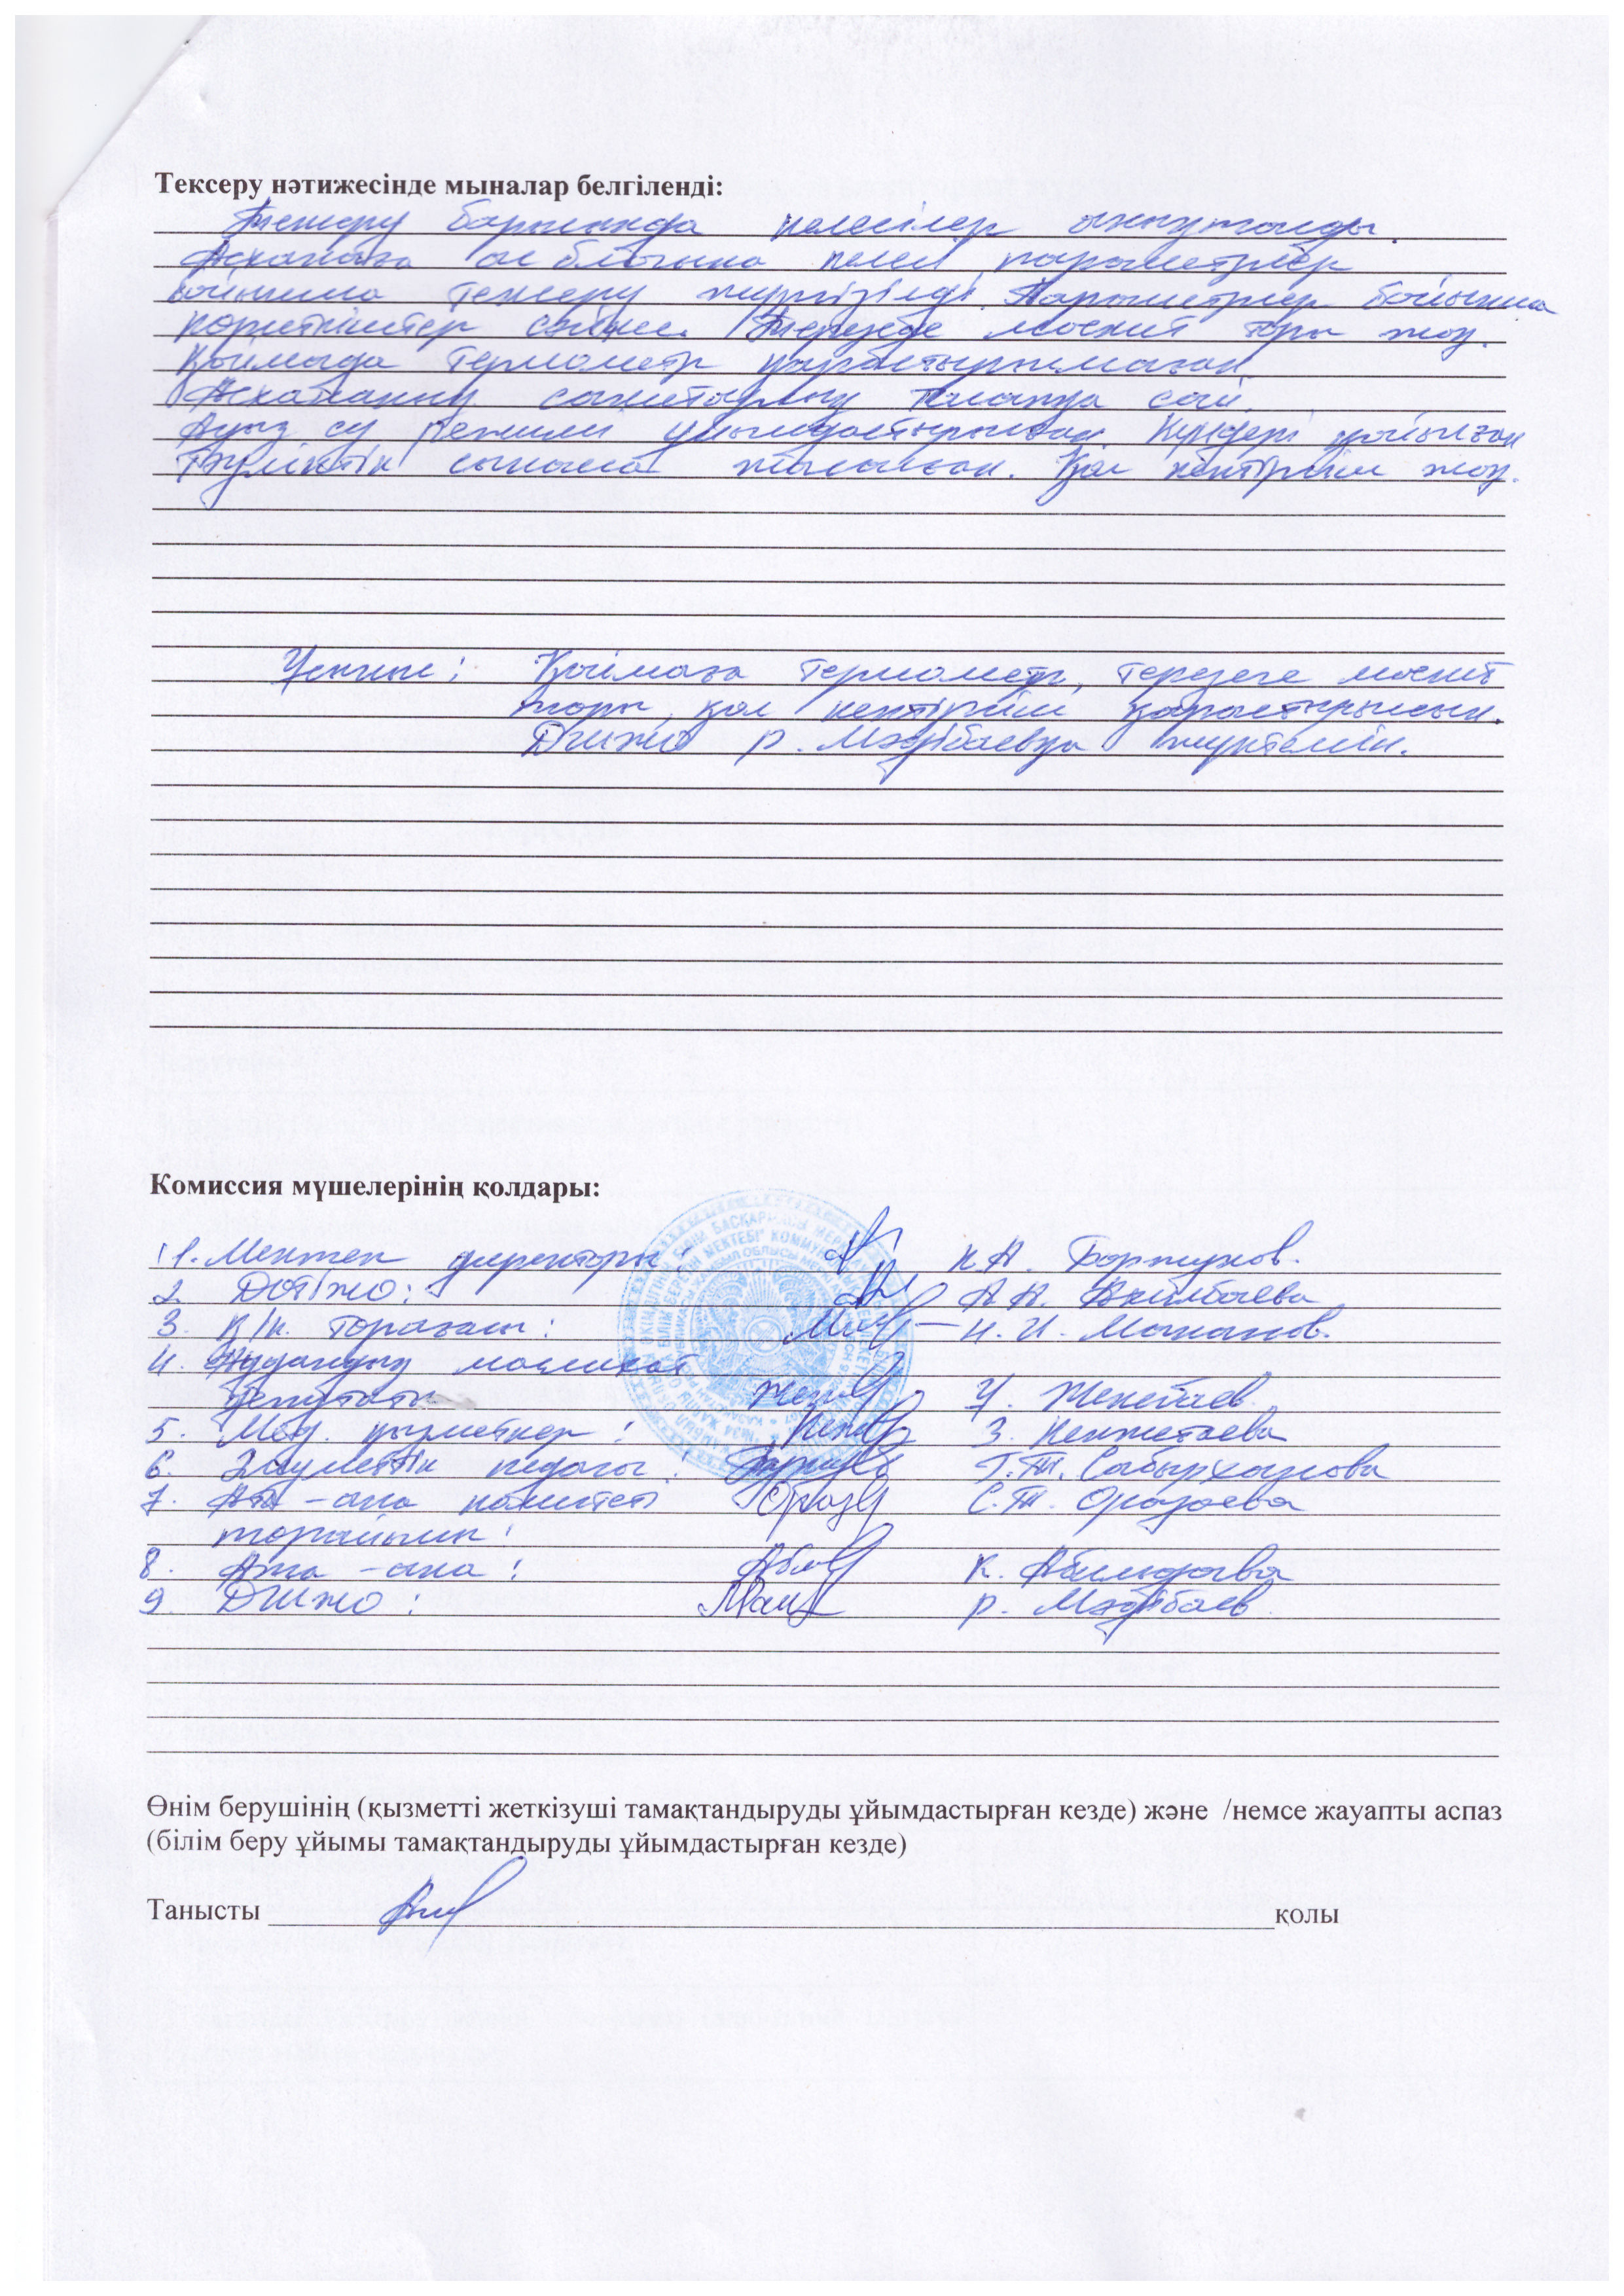 Тексеру нәтижесінде мыналар белгіленді:
Тексеру барысында келесілер анықталды.
Асханаға ас блогына келесі параметрлер
бойынша тексеру жүргізілді. Параметрлер бойынша
көрсеткіштер сәйкес. Терезеде москит торы жоқ.
Қоймада термометр қарастырылмаған
Асхананың санитарлық талапқа сай.
Ауыз су режимі ұйымдастырылған. Күнделі қойылған
Тәуліктік сынама алынған. Қол кептіргіш жоқ.
Ұсыныс: Қоймаға термометр, терезеге москит
торы, қол кептіргіш қарастырылсын.
ДШІЖО р. Мәдібаевқа жүктелсін.
Комиссия мүшелерінің қолдары:
1. Мектеп директоры: К.А. Боржуков.
2. ДОТІЖО: А.А. Акилбаева
3. К/к. төрағасы: Н.И. Маканов.
4. Аудандық маслихат
депутаты У. Женебаев
5. Мед. қызметкер: З. Кенжетаева
6. Әлеуметтік педагог: Г.Т. Сабырханова
7. Ата-ана комитеті С.Т. Оразаева
төрайымы:
8. Ата-ана: К. Абилдаева
9. ДШІЖО: р. Мәдібаев
Өнім берушінің (қызметті жеткізуші тамақтандыруды ұйымдастырған кезде) және /немсе жауапты аспаз
(білім беру ұйымы тамақтандыруды ұйымдастырған кезде)
Танысты қолы